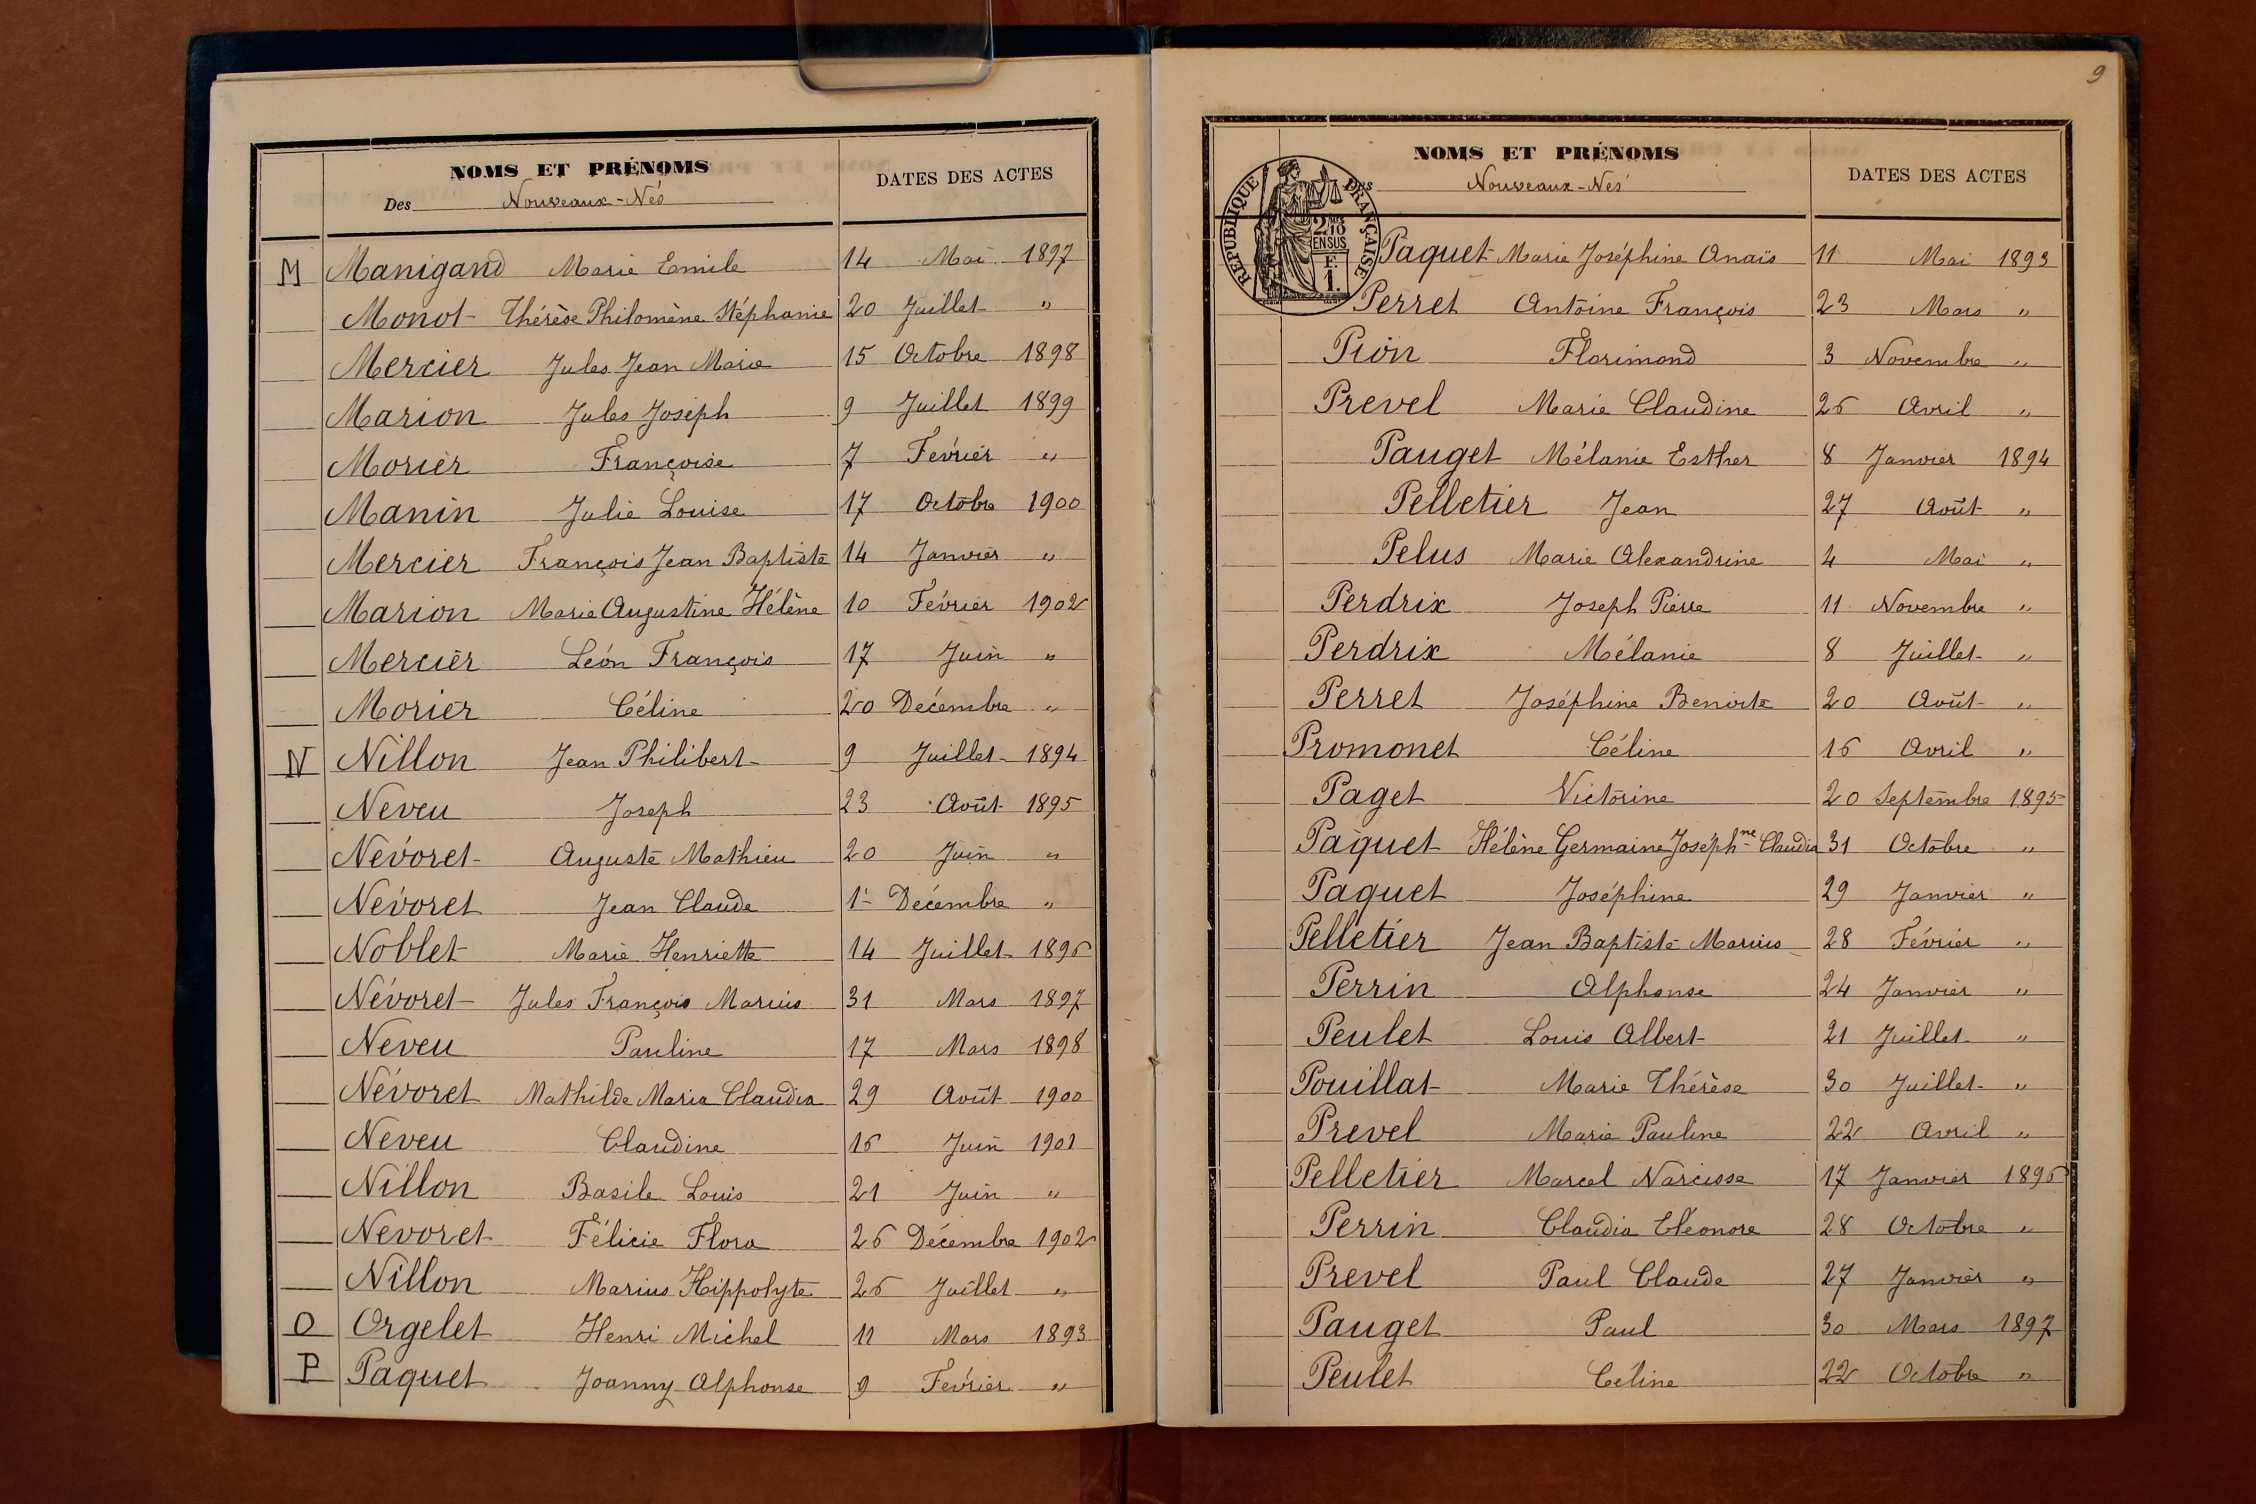 NOMS ET PRÉNOMS
DATES DES ACTES
Des Nouveaux-Nés
M Manigand Marie Emile 14 Mai 1897
Monot Thérèse Philomène Stéphanie 20 Juillet "
Mercier Jules Jean Marie 15 Octobre 1898
Marion Jules Joseph 9 Juillet 1899
Morier Françoise 7 Février "
Manin Julie Louise 17 Octobre 1900
Mercier François Jean Baptiste 14 Janvier "
Marion Marie Augustine Hélène 10 Février 1902
Mercier Léon François 17 Juin "
Morier Céline 20 Décembre "
N Nillon Jean Philibert 9 Juillet 1894
Neveu Joseph 23 Août 1895
Névoret Auguste Mathieu 20 Juin "
Névoret Jean Claude 1er Décembre "
Noblet Marie Henriette 14 Juillet 1896
Névoret Jules François Marius 31 Mars 1897
Neveu Pauline 17 Mars 1898
Névoret Mathilde Maria Claudia 29 Août 1900
Neveu Claudine 16 Juin 1901
Nillon Basile Louis 21 Juin "
Nevoret Félicie Flora 26 Décembre 1902
Nillon Marius Hippolyte 26 Juillet "
O Orgelet Henri Michel 11 Mars 1893
P Paquet Joanny Alphonse 9 Février "
9
NOMS ET PRÉNOMS
DATES DES ACTES
Des Nouveaux-Nés
RÉPUBLIQUE FRANÇAISE
2/10
EN SUS
F.
1.
Paquet Marie Joséphine Anaïs 11 Mai 1893
Perret Antoine François 23 Mars "
Pion Florimond 3 Novembre "
Prevel Marie Claudine 26 Avril "
Pauget Mélanie Esther 8 Janvier 1894
Pelletier Jean 27 Août "
Pelus Marie Alexandrine 4 Mai "
Perdrix Joseph Pierre 11 Novembre "
Perdrix Mélanie 8 Juillet "
Perret Joséphine Benoite 20 Août "
Promonet Céline 16 Avril "
Paget Victorine 20 Septembre 1895
Paquet Hélène Germaine Joséphne Claudia 31 Octobre "
Paquet Joséphine 29 Janvier "
Pelletier Jean Baptiste Marius 28 Février "
Perrin Alphonse 24 Janvier "
Peulet Louis Albert 21 Juillet "
Pouillat Marie Thérèse 30 Juillet "
Prevel Marie Pauline 22 Avril "
Pelletier Marcel Narcisse 17 Janvier 1896
Perrin Claudia Eléonore 28 Octobre "
Prevel Paul Claude 27 Janvier "
Pauget Paul 30 Mars 1897
Peulet Céline 22 Octobre "